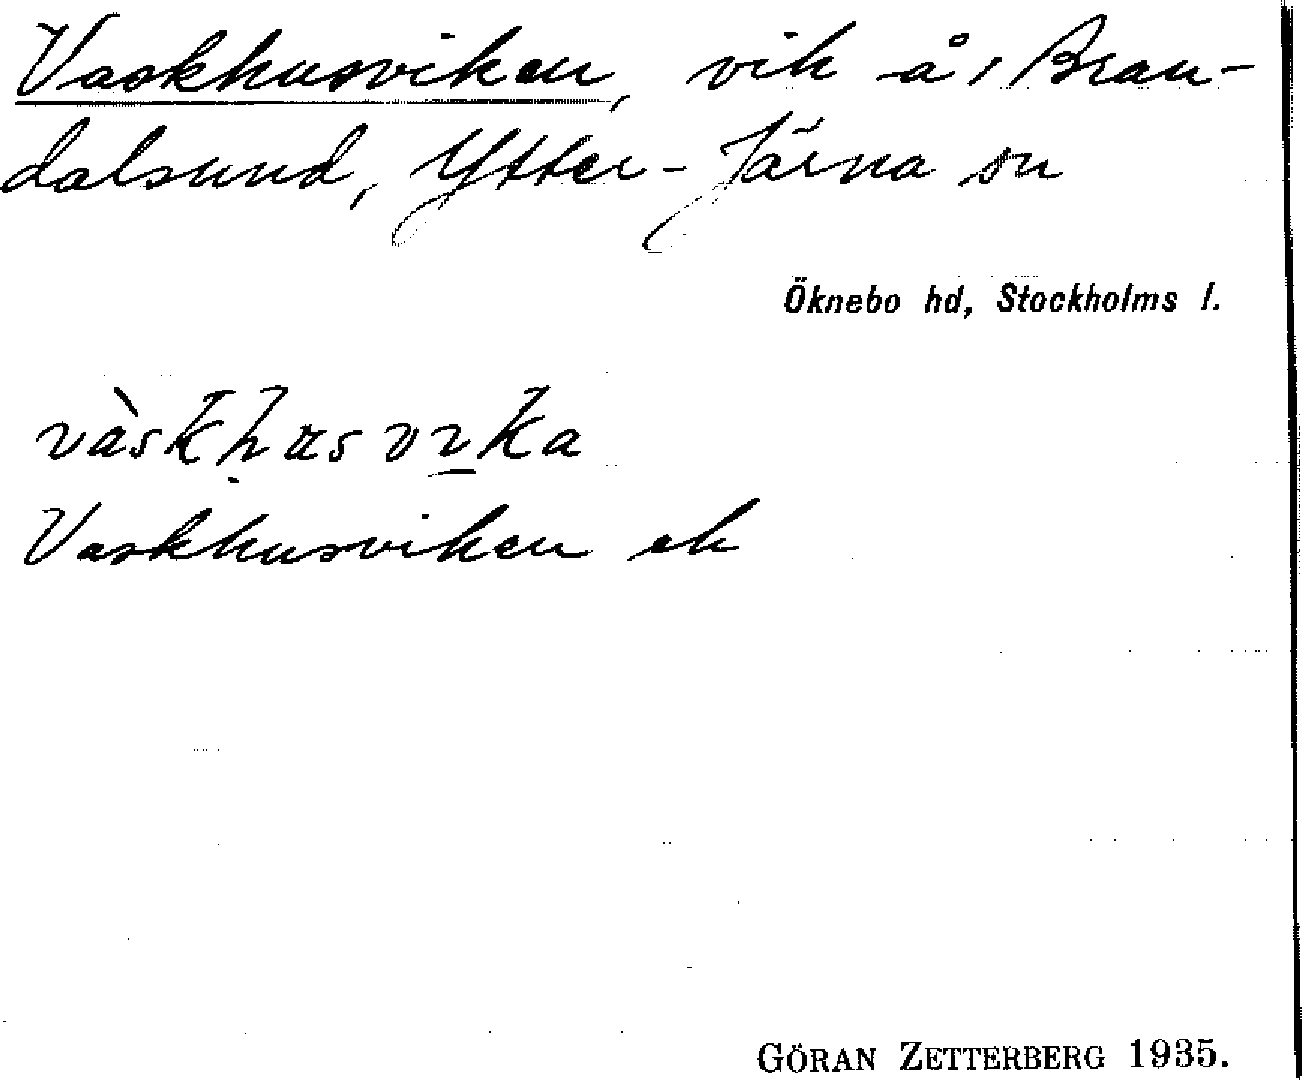 Vaskhusviken, vik å, Bran-
dalsund, Ytter-Järna sn
Öknebo hd, Stockholms l.
vàskḥusvıka
Vaskhusviken ek
GÖRAN ZETTERBERG 1935.